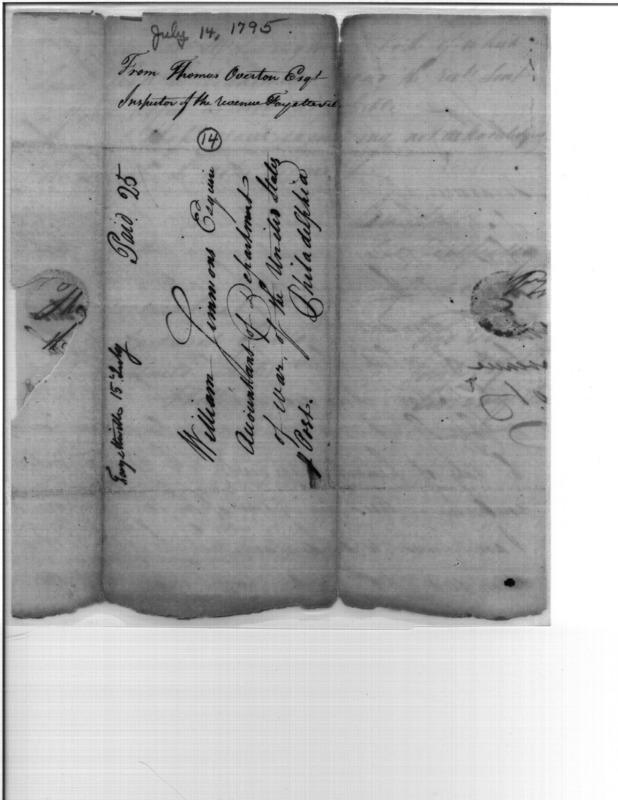 July 14, 1795.
From Thomas Overton Esqr
Inspector of the revenue Fayettevil
14
Paid 25
Fayetteville 15th July
William Simmons Esquire
Accountant of Department
of War, of the United States
Philadelphia
Post.